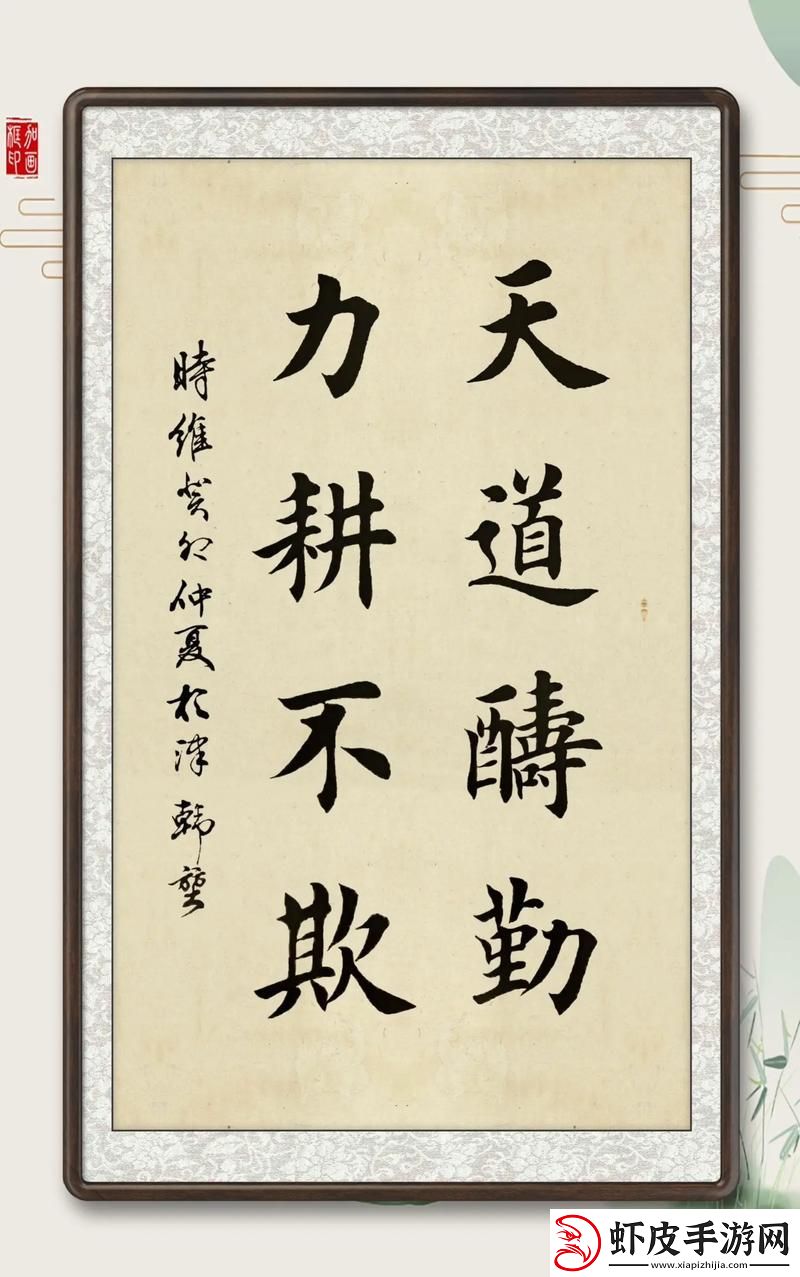 天道酬勤
力耕不欺
時維癸卯仲夏於津 韓
加画框印
虾皮手游网
www.xiapizhijia.com